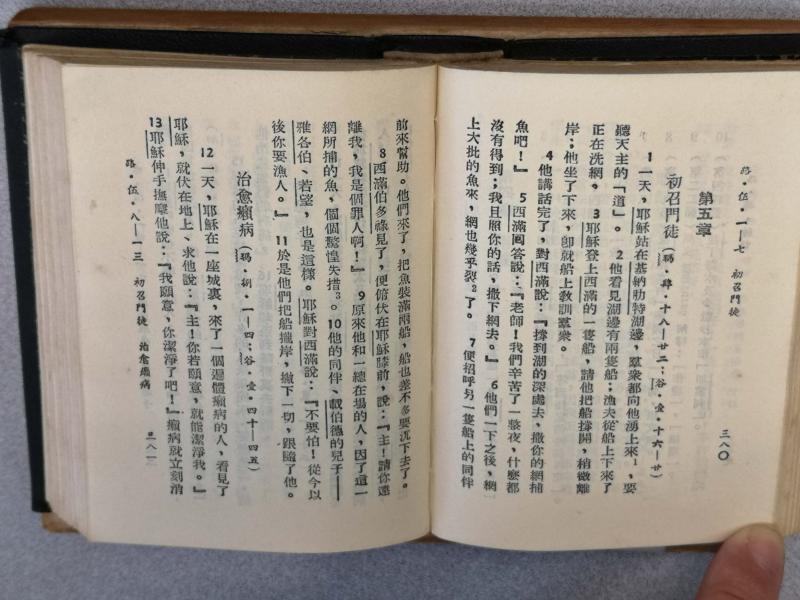 路·伍·一—七　初召門徒　三八〇
第五章
初召門徒（瑪·肆·十八—廿二；谷·壹·十六—廿）
1一天，耶穌站在基納肋特湖邊，羣衆都向他湧上來1，要
聽天主的「道」。　2他看見湖邊有兩隻船；漁夫從船上下來了
正在洗網。　3耶穌登上西滿的一隻船，請他把船撐開，稍微離
岸；他坐了下來，卽就船上教訓羣衆。
4他講話完了，對西滿說：『撐到湖的深處去，撒你的網捕
魚吧！』　5西滿囘答說：『老師！我們辛苦了一整夜，什麼都
沒有得到；我且照你的話，撒下網去。』　6他們一下之後，網
上大批的魚來，網也幾乎裂2了。　7便招呼另一隻船上的同伴
前來幫助。他們來了，把魚裝滿兩船，船也差不多要沉下去了。
8西滿伯多祿見了，便俯伏在耶穌膝前，說：『主！請你遠
離我，我是個罪人啊！』　9原來他和一總在場的人，因了這一
網所捕的魚，個個驚惶失措3。10他的同伴、載伯德的兒子—
雅各伯、若望，也是這樣。耶穌對西滿說：『不要怕！從今以
後你要漁人。』　11於是他們把船攏岸，撇下一切，跟隨了他。
治愈癩病（瑪·捌·一—四；谷·壹·四十—四五）
12一天，耶穌在一座城裏，來了一個遍體癩病的人，看見了
耶穌，就伏在地上、求他說：『主！你若願意，就能潔淨我。』
13耶穌伸手撫摩他說：『我願意，你潔淨了吧！』癩病就立刻消
路·伍·八—一三　初召門徒　治愈癩病　三八一